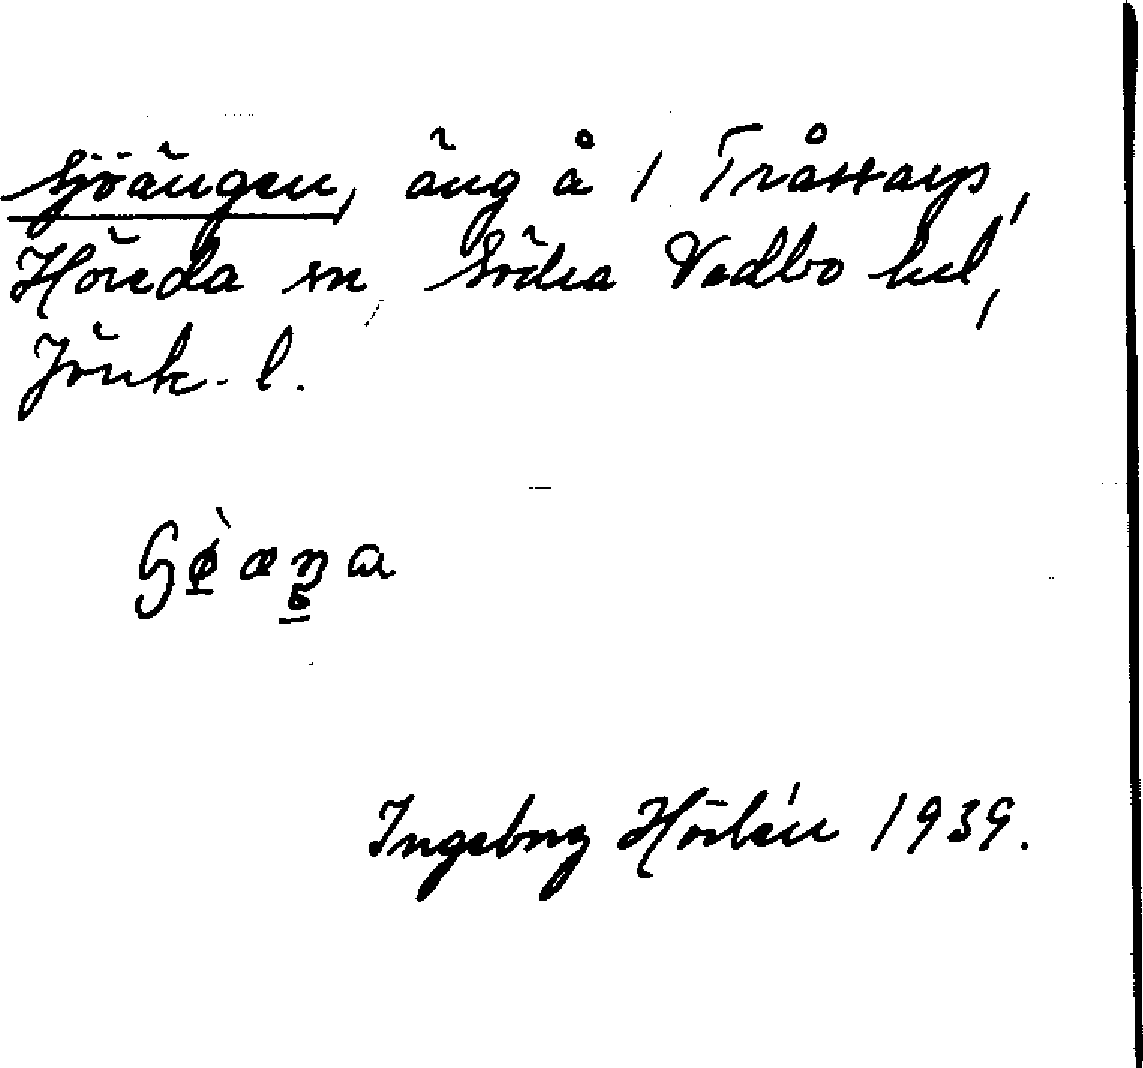 Sjöängen, äng å 1 Tråstarp,
Höreda sn, Södra Vedbo hd,
Jönk. l.
Ingeborg Hörlén 1939.